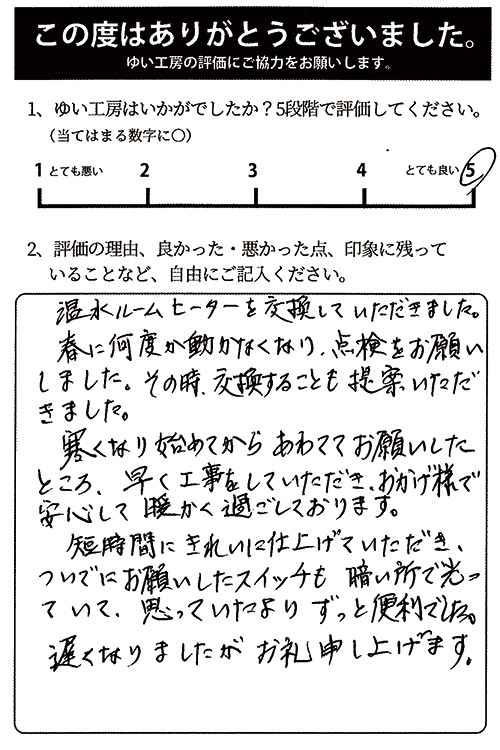 この度はありがとうございました。
ゆい工房の評価にご協力をお願いします。
1、ゆい工房はいかがでしたか？5段階で評価してください。
（当てはまる数字に○）
1 とても悪い 2 3 4 とても良い 5
2、評価の理由、良かった・悪かった点、印象に残って
いることなど、自由にご記入ください。
温水ルームヒーターを交換していただきました。
春に何度か動かなくなり、点検をお願い
しました。その時、交換することも提案いただ
きました。
寒くなり始めてからあわててお願いした
ところ、早く工事をしていただき、おかげ様で
安心して暖かく過ごしております。
短時間にきれいに仕上げていただき、
ついでにお願いしたスイッチも暗い所で光っ
ていて、思っていたよりずっと便利でした。
遅くなりましたがお礼申し上げます。